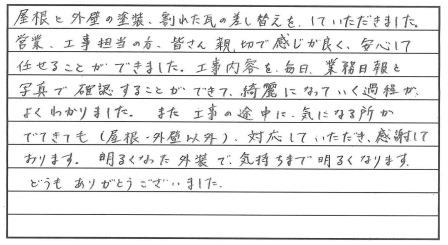 屋根と外壁の塗装、割れた瓦の差し替えを、していただきました。
営業、工事担当の方、皆さん親切で感じが良く、安心して
任せることができました。工事内容を、毎日、業務日報と
写真で確認することができて、綺麗になっていく過程が、
よくわかりました。また工事の途中に、気になる所が
でてきても（屋根・外壁以外）、対応していただき、感謝して
おります。明るくなった外装で、気持ちまで明るくなります。
どうもありがとうございました。